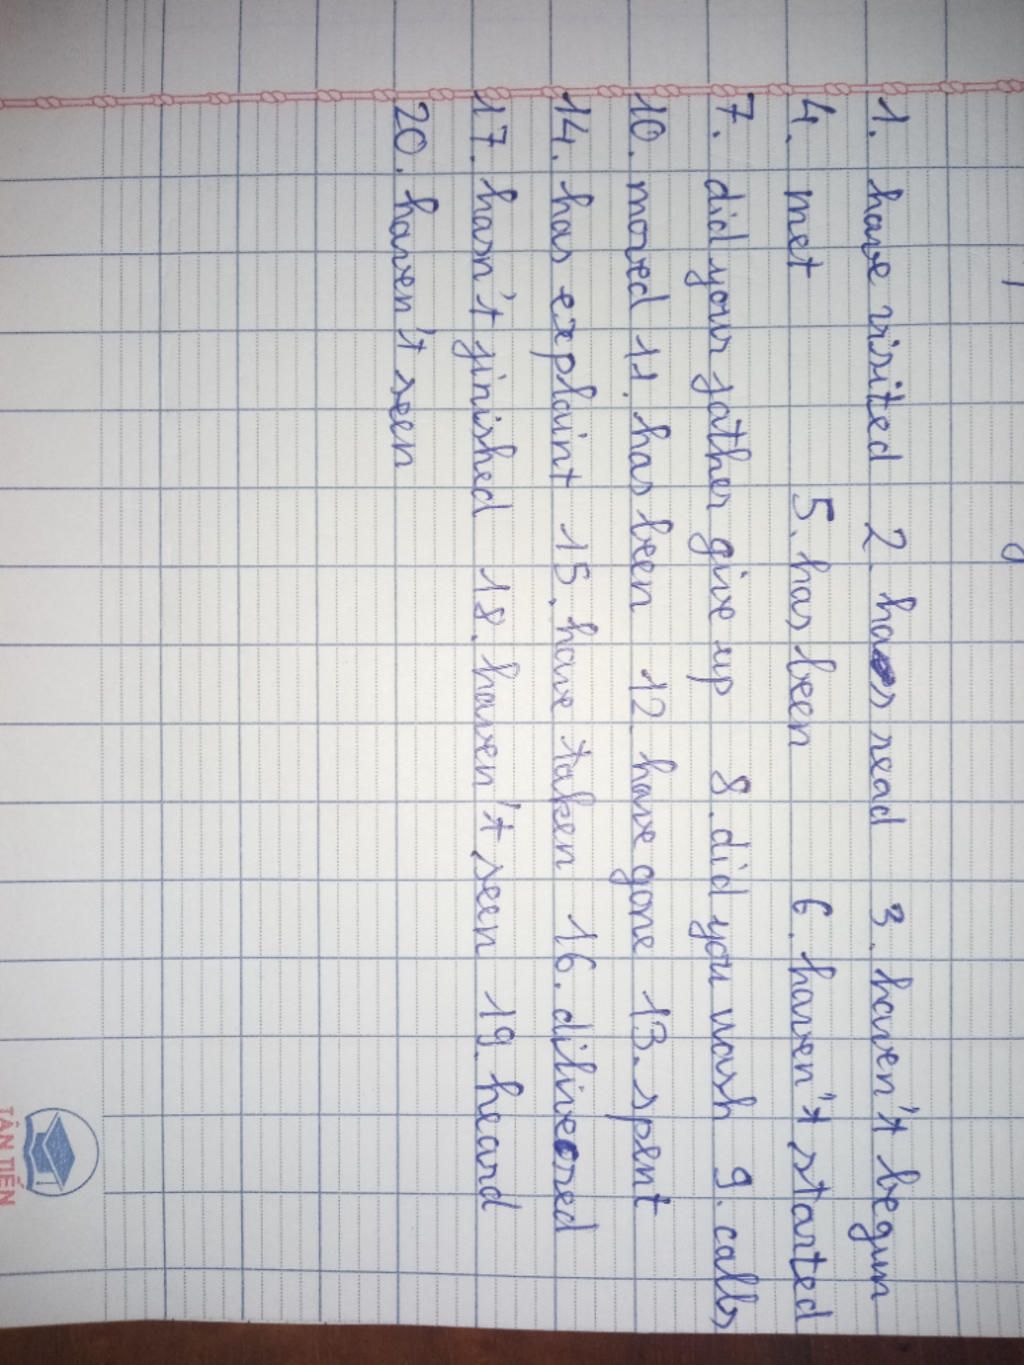 1. have visited 2. has read 3. haven't begun
4. met 5. has been 6. haven't started
7. did your father give up 8. did you wash 9. calls
10. moved 11. has been 12. have gone 13. spent
14. has explaint 15. have taken 16. dilivered
17. hasn't finished 18. haven't seen 19. heard
20. haven't seen
TÂN TIẾN